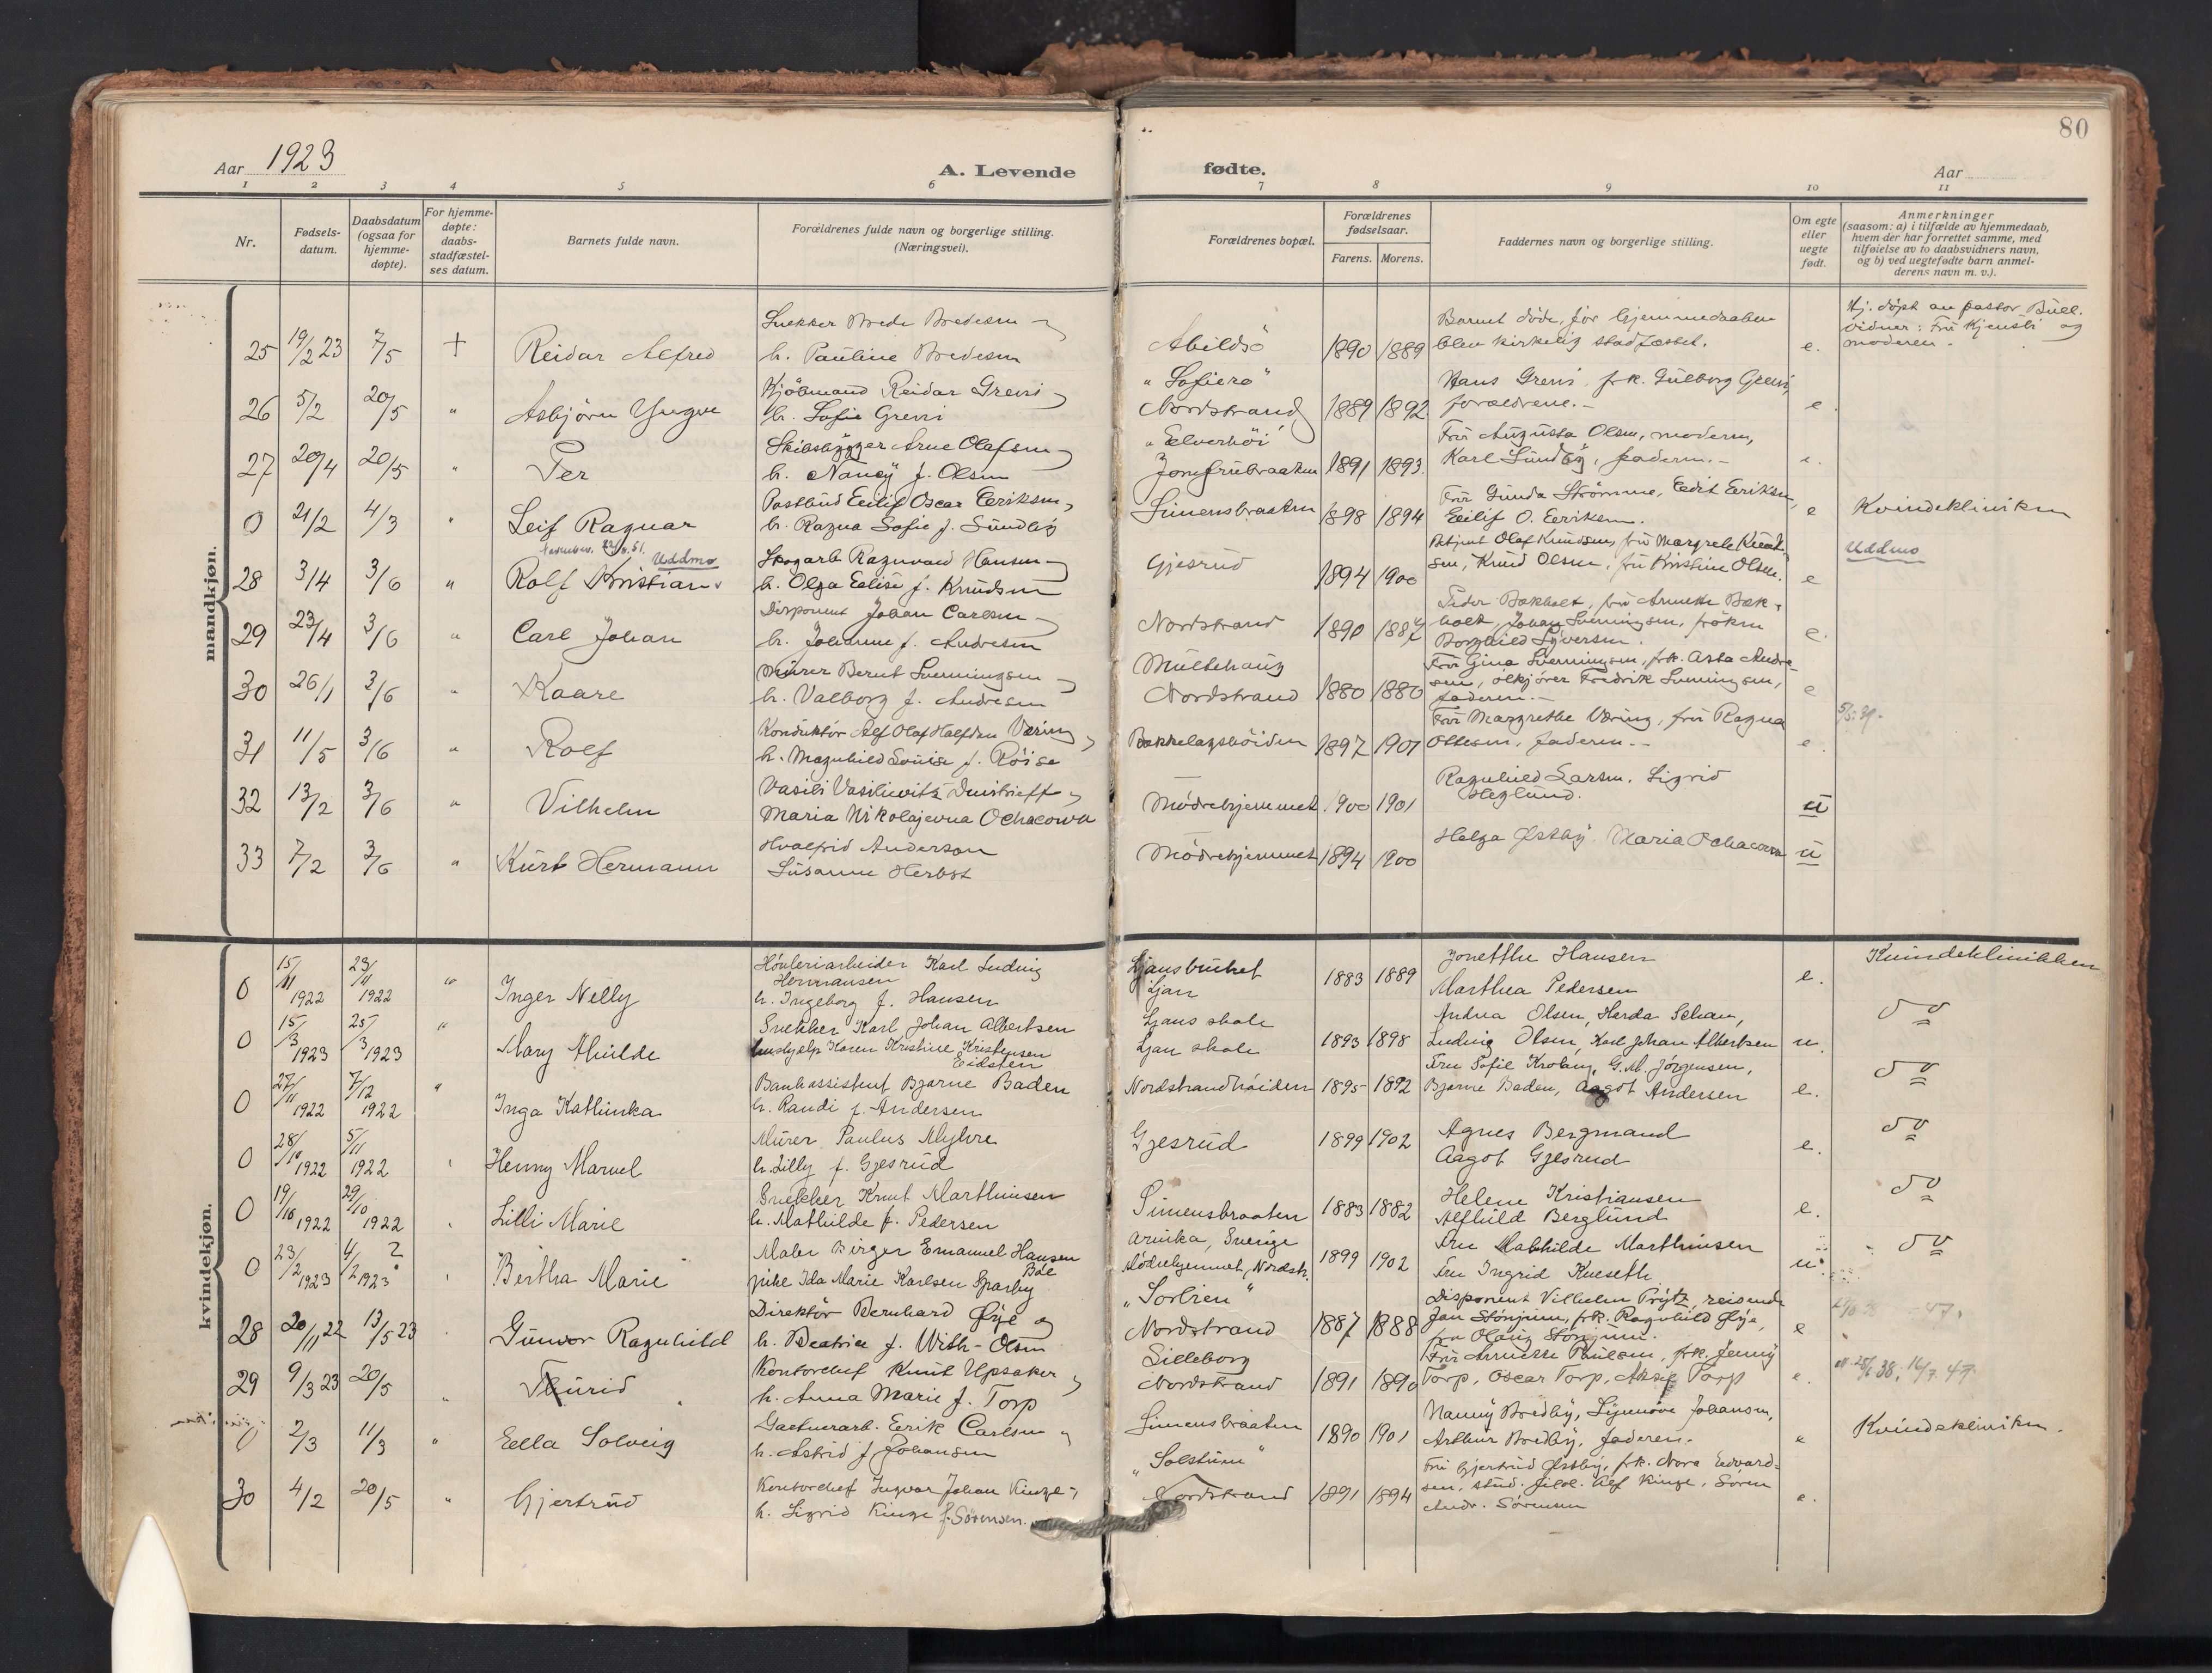 80
Aar 1923
A. Levende
fødte.
Aar
1 2 3 4 5 6 7 8 9 10 11
Nr.
Fødsels-
datum.
Daabsdatum
(ogsaa for
hjemme-
døpte).
For hjemme-
døpte:
daabs-
stadfæstel-
ses datum.
Barnets fulde navn.
Forældrenes fulde navn og borgerlige stilling.
(Næringsvei).
Forældrenes bopæl.
Forældrenes
fødselsaar.
Farens. Morens.
Faddernes navn og borgerlige stilling.
Om egte
eller
uegte
født.
Anmerkninger
(saasom: a) i tilfælde av hjemmedaab,
hvem der har forrettet samme, med
tilføielse av to daabsvidners navn,
og b) ved uegtefødte barn anmel-
derens navn m. v.).
mandkjøn.
25 19/2 23 7/5 + Reidar Alfred
Snekker Brede Bredesen
h. Pauline Bredesen
Abildsö 1890 1889
Barnet döde, før hjemmedaaben
blev kirkelig stadfæstet.
e.
Hj. døpt av pastor Bull.
Vidner: Fru Kjensli og
moderen.
26 5/2 20/5 " Asbjörn Yngve
Kjöbmand Reidar Greni
h. Sofie Greni
"Sofiero"
Nordstrand 1889 1892
Hans Greni, frk. Gulborg Greni,
forældrene.-
e.
27 20/4 20/5 " Per
Skibsbygger Arne Olafsen
h. Nancy f. Olsen
"Elverhöi"
Jomfrubraaten 1891 1893.
Fru Augusta Olsen, moderen,
Karl Sundby, faderen.-
e.
0 21/2 4/3 " Leif Ragnar
Postbud Eilif Oscar Eriksen,
h. Ragna Sofie f. Sundby
Simensbraaten 1898 1894
Fru Gunda Strömme, Edit Eriksen,
Eilif O. Eriksen.
e
Kvindekliniken
28 3/4 3/6 " Rolf Kristian
Uddmo
Skogarb. Ragnvald Hansen
h. Olga Elise f. Knudsen
Gjesrud 1894 1900
Betjent Olaf Knudsen, fru Margrete Knud-
sen, Knud Olsen, fru Kristine Olsen.
e
Uddmo
29 23/4 3/6 " Carl Johan
Disponent Johan Carlsen
h. Johanne f. Andresen
Nordstrand 1890 1887
Peder Bækholt, fru Annette Bæk-
holt, Johan Svenningsen, fröken
Borghild Syversen.
e.
30 26/1 3/6 " Kaare
Murer Bernt Svenningsen
h. Valborg f. Andresen
Multehaug
Nordstrand 1880 1880
Fru Gina Svenningsen, frk. Asta Andre-
sen, ölkjörer Fredrik Svenningsen,
faderen.-
e
31 11/5 3/6 " Rolf
Konduktör Alf Olaf Halfdan Væring
h. Magnhild Louise f. Röise
Bækkelagshöiden 1897 1901
Fru Margrethe Væring, fru Ragna
Ottesen, faderen.-
e.
5/5. 39.
32 13/2 3/6 " Vilhelm
Vasili Vasilievitz Dmitrieff
Maria Nikolajevna Ochacowa
Mödrehjemmet 1900 1901
Ragnhild Larsen, Sigrid
Heglund.
u
33 7/2 3/6 " Kurt Hermann
Hvalfrid Anderson
Susanne Herbst
Mödrehjemmet 1894 1900
Helga Østby, Maria Ochacowa
u
kvindekjøn.
0 15/11 1922 23/11 1922 " Inger Nelly
Hövleriarbeider Karl Ludvig
Hermansen
h. Ingeborg f. Hansen
Ljansbruket
Ljan 1883 1889
Jonetthe Hansen
Marthea Pedersen
e.
Kvindeklinikken
0 15/3 1923 25/3 1923 " Mary Alhilde
Snekker Karl Johan Albertsen
hushjelp Karen Kristine Kristensen
Eidsten
Ljans skole
Ljan skole 1893 1898
Andrea Olsen, Herda Schau,
Ludvig Olsen, Karl Johan Albertsen
u.
do
0 27/11 1922 7/12 1922 " Inga Kathinka
Bankassistent Bjarne Baden
h. Randi f. Andersen
Nordstrandhöiden 1895 1892
Fru Sofie Kroking, G.M. Jörgensen,
Bjarne Baden, Aagot Andersen
e.
do
0 28/10 1922 5/11 1922 Henny Marvel
Murer Paulus Myhre
h. Lilly f. Gjesrud
Gjesrud 1899 1902
Agnes Bergmand
Aagot Gjesrud
e.
do
0 19/10 1922 29/10 1922 Lilli Marie
Snekker Knut Marthinsen
h. Mathilde f. Pedersen
Simensbraaten 1883 1882
Helene Kristiansen
Alfhild Berglund
e.
do
0 23/2 1923 4/2 1923 ? Bertha Marie
Maler Birger Emanuel Hansen
Böe
pike Ida Marie Karlsen Sparby
Arvika, Sverige
Mödrehjemmet, Nordstr. 1899 1902
Fru Mathilde Marthinsen
Fru Ingrid Kneseth
u.
do
28 20/11 22 13/5 23 Gunvor Ragnhild
Direktör Bernhard Øye og
h. Beatrice f. With-Olsen
"Solbren"
Nordstrand 1887 1888
Disponent Vilhelm Prytz, reisende
Jan Stönjum, frk. Ragnhild Øye,
fru Olaug Stönjum.
e
29 9/3 23 20/5 " Thurid
Kontorchef Knut Upsaker
h. Anna Marie f. Torp
Lilleborg
Nordstrand 1891 1890
Fru Annette Paulsen, frk. Jenny
Torp, Oscar Torp, Aksel Torp
e.
25/6 38. 16/7. 47.
0 2/3 11/3 " Ella Solveig
Gartnerarb. Erik Carlsen
h. Astrid f. Johansen
Simensbraaten 1890 1901
Nanny Bredby, Synnöve Johansen,
Arthur Bredby, faderen.
e
Kvindekliniken.
30 4/2 20/5 " Gjertrud
Kontorchef Ingvar Johan Kinge
h. Sigrid Kinge f. Sörensen.
"Solstuen"
Nordstrand 1891 1894
Fru Gjertrud Østby, frk. Nora Edvard-
sen, stud. filol. Alf Kinge, Sören
Andr. Sörensen
e.